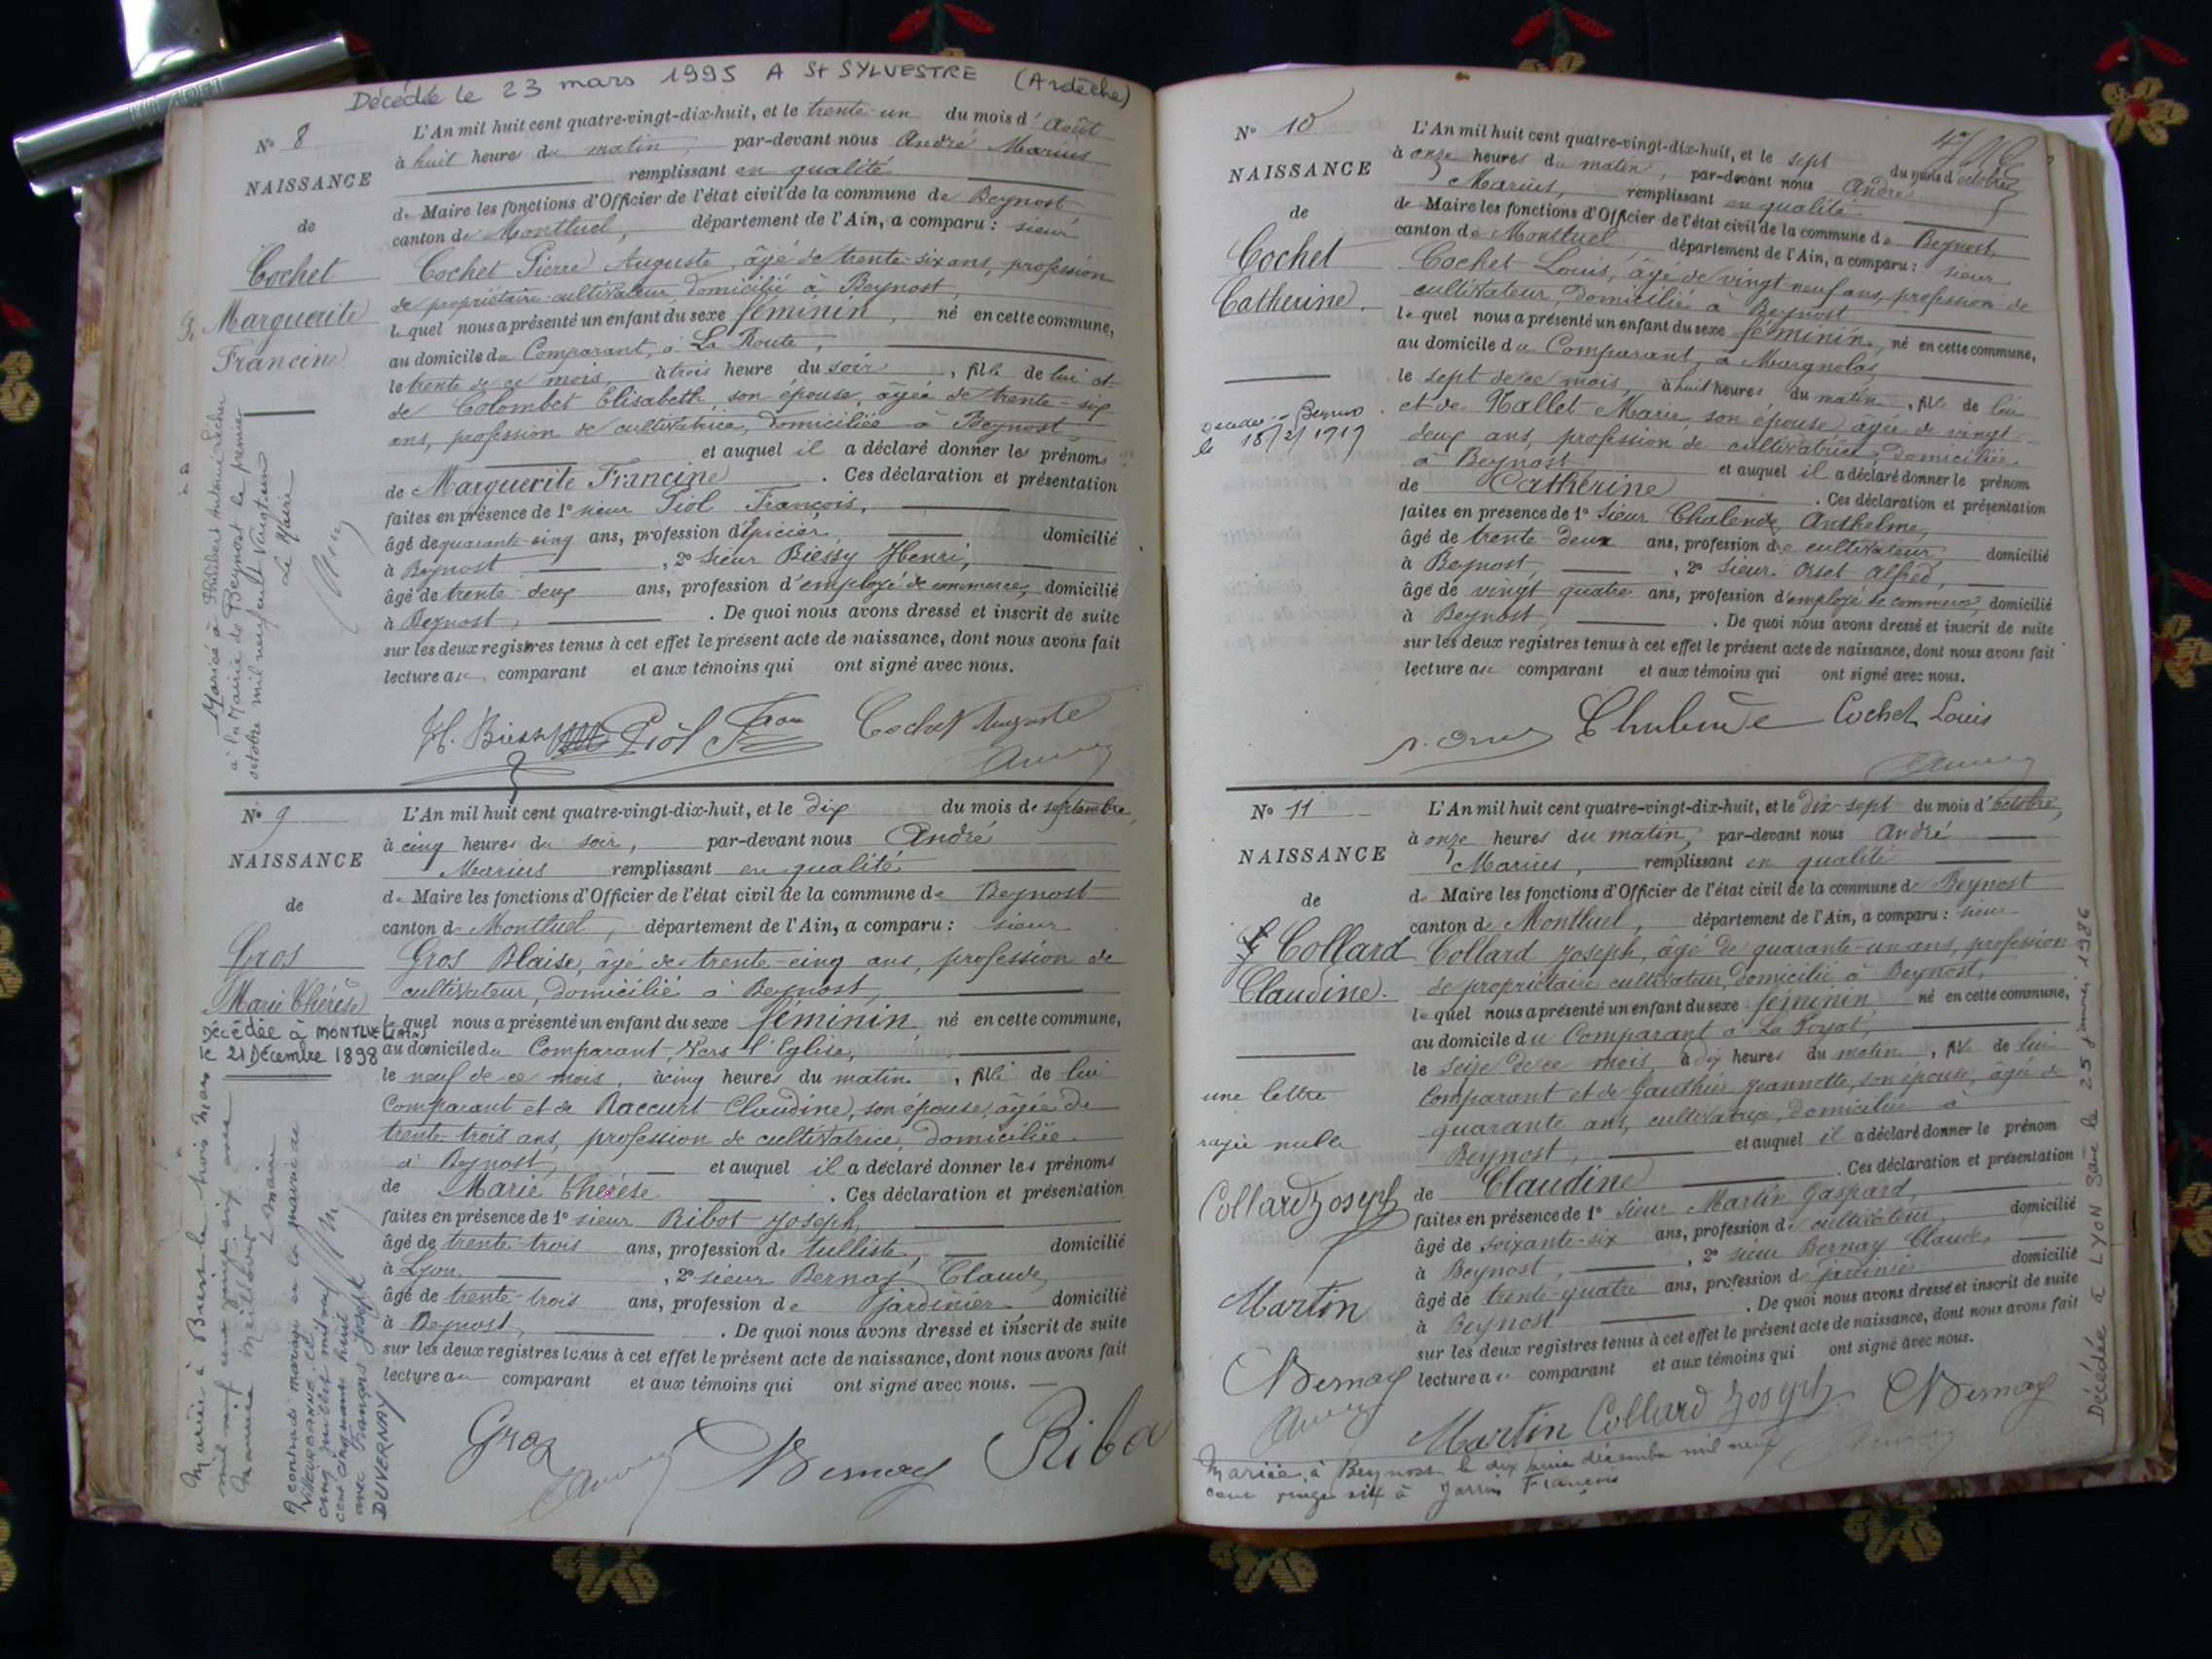 Décédée le 23 mars 1995 A St SYLVESTRE (Ardèche)
N° 8
NAISSANCE
de
Cochet
Marguerite
Francine
L'An mil huit cent quatre-vingt-dix-huit, et le trente-un du mois d'Août
à huit heures du matin, par-devant nous André Marius
remplissant en qualité
de Maire les fonctions d'Officier de l'état civil de la commune de Beynost
canton de Montluel, département de l'Ain, a comparu : sieur
Cochet Pierre Auguste, âgé de trente-six ans, profession
de propriétaire-cultivateur domicilié à Beynost,
lequel nous a présenté un enfant du sexe féminin, né en cette commune,
au domicile du Comparant, à La Route,
le trente de ce mois à trois heure du soir, fille de lui et
de Colombet Elisabeth son épouse, âgée de trente-six
ans, profession de cultivatrice, domiciliée à Beynost
et auquel il a déclaré donner les prénoms
de Marguerite Francine. Ces déclaration et présentation
faites en présence de 1° sieur Piol François,
âgé de quarante-cinq ans, profession d'Epicier, domicilié
à Beynost, 2° sieur Biessy Henri,
âgé de trente-deux ans, profession d'employé de commerce, domicilié
à Beynost, . De quoi nous avons dressé et inscrit de suite
sur les deux registres tenus à cet effet le présent acte de naissance, dont nous avons fait
lecture au comparant et aux témoins qui ont signé avec nous.
Mariée à Philibert Antoine
à la Mairie de Beynost le premier
octobre mil neuf cent vingt un
Le Maire
H. Biessy Piol Fran Cochet Auguste
N° 9
NAISSANCE
de
Gros
Marie Thérèse
Décédée à MONTLUEL (AIN)
le 21 Décembre 1898
L'An mil huit cent quatre-vingt-dix-huit, et le dix du mois de septembre,
à cinq heures du soir, par-devant nous André
Marius remplissant en qualité
de Maire les fonctions d'Officier de l'état civil de la commune de Beynost
canton de Montluel, département de l'Ain, a comparu : sieur
Gros Blaise, âgé de trente-cinq ans, profession de
cultivateur, domicilié à Beynost,
lequel nous a présenté un enfant du sexe féminin, né en cette commune,
au domicile du Comparant, Vers l'Eglise,
le neuf de ce mois, à cinq heures du matin, fille de lui
Comparant et de Raccurt Claudine, son épouse, âgée de
trente-trois ans, profession de cultivatrice, domiciliée
à Beynost, et auquel il a déclaré donner les prénoms
de Marie Thérèse. Ces déclaration et présentation
faites en présence de 1° sieur Ribot Joseph,
âgé de trente-trois ans, profession de tulliste, domicilié
à Lyon, 2° sieur Bernay Claude
âgé de trente-trois ans, profession de jardinier domicilié
à Beynost, . De quoi nous avons dressé et inscrit de suite
sur les deux registres tenus à cet effet le présent acte de naissance, dont nous avons fait
lecture au comparant et aux témoins qui ont signé avec nous.
Mariée à le trois Mars
mil neuf cent vingt six avec
Le Maire
A contracté mariage en la mairie de
VILLEURBANNE le
cinq juillet mil neuf
cent cinquante huit
avec François Joseph
DUVERNAY
Gros Bernay Ribo
N° 10
NAISSANCE
de
Cochet
Catherine.
L'An mil huit cent quatre-vingt-dix-huit, et le sept du mois d'octobre
à onze heures du matin, par-devant nous André
Marius, remplissant en qualité
de Maire les fonctions d'Officier de l'état civil de la commune de Beynost,
canton de Montluel, département de l'Ain, a comparu : sieur
Cochet Louis, âgé de vingt-neuf ans, profession de
cultivateur, domicilié à Beynost
lequel nous a présenté un enfant du sexe féminin, né en cette commune,
au domicile du Comparant, à Margnolas
le sept de ce mois, à huit heures du matin, fille de lui
et de Mallet Marie, son épouse âgée de vingt-
deux ans, profession de cultivatrice, domiciliée
à Beynost et auquel il a déclaré donner le prénom
de Catherine. Ces déclaration et présentation
faites en présence de 1° Sieur Chalende Anthelme,
âgé de trente-deux ans, profession de cultivateur, domicilié
à Beynost, 2° Sieur Orset Alfred,
âgé de vingt quatre ans, profession d'employé de commerce, domicilié
à Beynost, . De quoi nous avons dressé et inscrit de suite
sur les deux registres tenus à cet effet le présent acte de naissance, dont nous avons fait
lecture au comparant et aux témoins qui ont signé avec nous.
le 18/2/1919
Chalende Cochet Louis
N° 11
NAISSANCE
de
Collard
Claudine.
L'An mil huit cent quatre-vingt-dix-huit, et le dix-sept du mois d'octobre,
à onze heures du matin, par-devant nous André
Marius, remplissant en qualité
de Maire les fonctions d'Officier de l'état civil de la commune de Beynost
canton de Montluel, département de l'Ain, a comparu : sieur
Collard Joseph, âgé de quarante-un ans, profession
de propriétaire cultivateur, domicilié à Beynost,
lequel nous a présenté un enfant du sexe féminin né en cette commune,
au domicile du Comparant à
le seize de ce mois à dix heures du matin, fille de lui
Comparant et de Gauthier Jeannette, son épouse, âgée de
quarante ans, cultivatrice, domiciliée à
Beynost, et auquel il a déclaré donner le prénom
de Claudine. Ces déclaration et présentation
faites en présence de 1° Sieur Martin Gaspard,
âgé de soixante-six ans, profession de cultivateur domicilié
à Beynost, 2° sieur Bernay Claude,
âgé de trente-quatre ans, profession de jardinier domicilié
à Beynost. De quoi nous avons dressé et inscrit de suite
sur les deux registres tenus à cet effet le présent acte de naissance, dont nous avons fait
lecture au comparant et aux témoins qui ont signé avec nous.
une lettre
rayée nulle
Collard Joseph
Martin
Bernay
Martin Collard Joseph Bernay
Mariée à Beynost le dix huit décembre mil neuf
cent vingt six à François
Décédée à LYON 3ème le 25 janvier 1986